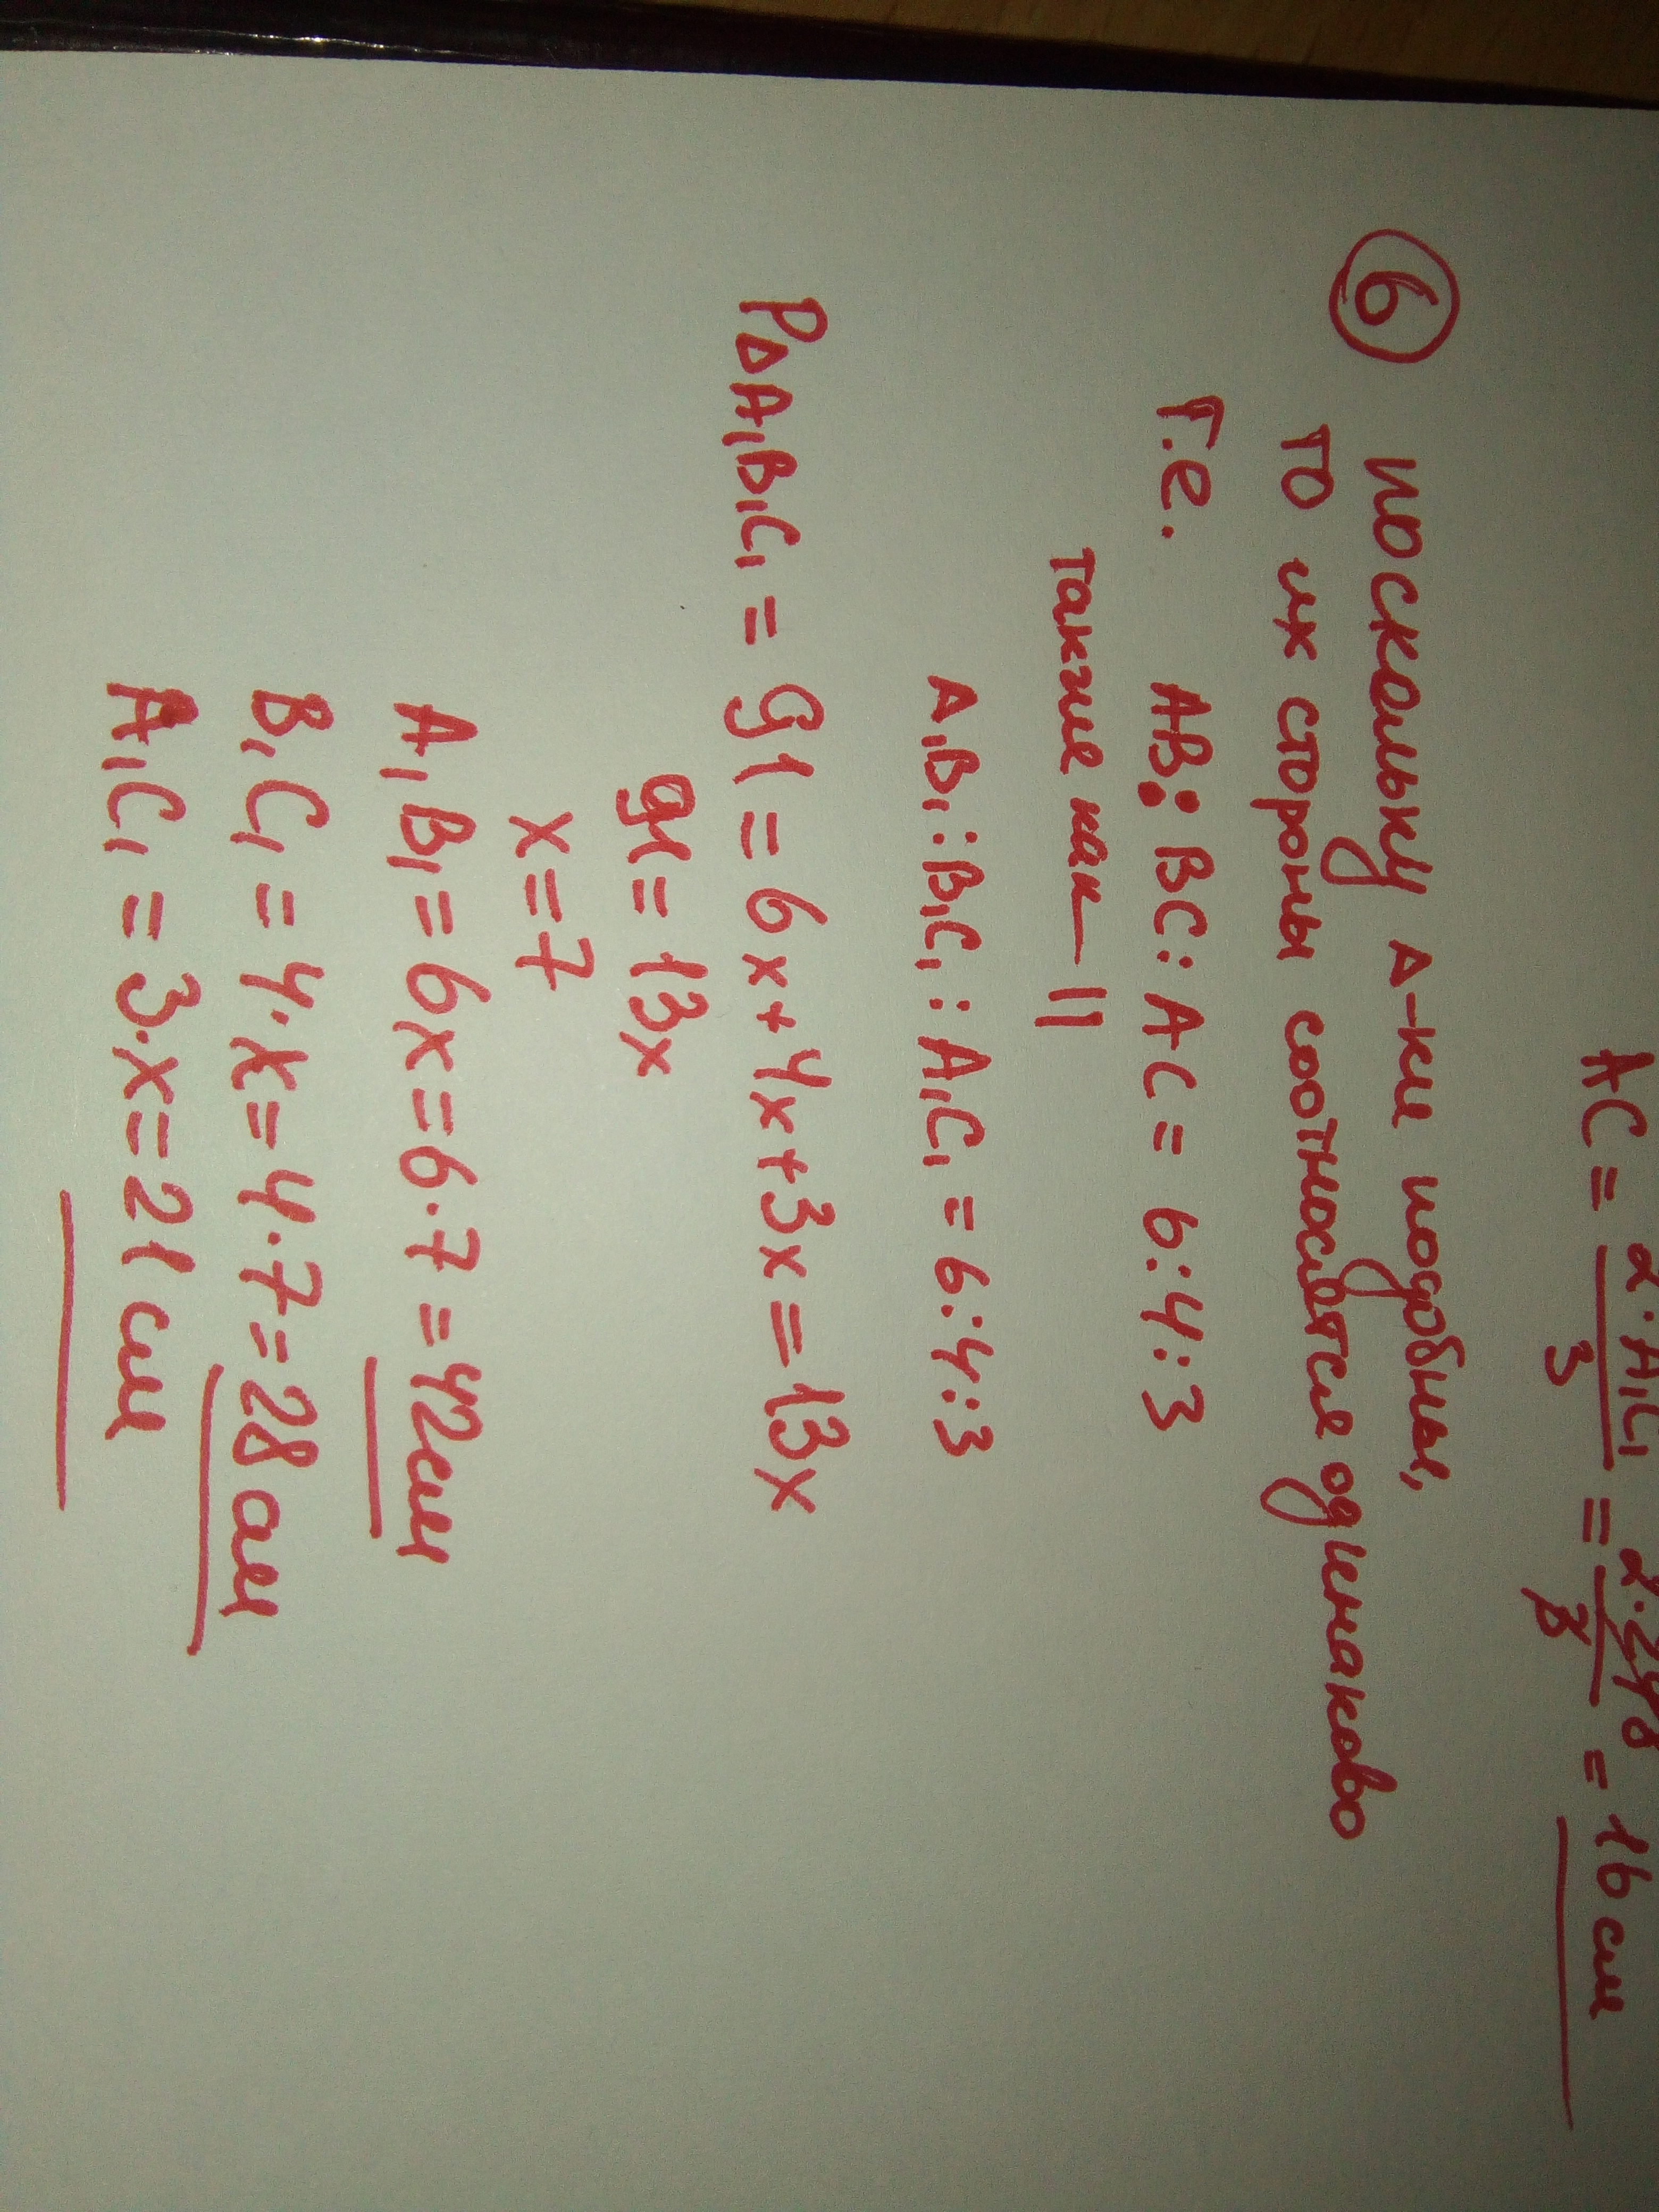 AC = 2·A₁C₁/3 = 2·248/3 = 16 см
6 поскольку Δ-ки подобны,
то их стороны соотносятся одинаково
т.е. AB:BC:AC = 6:4:3
такие как — ||
A₁B₁:B₁C₁:A₁C₁ = 6:4:3
PΔA₁B₁C₁ = 91 = 6x+4x+3x = 13x
91 = 13x
x=7
A₁B₁ = 6x = 6·7 = 42см
B₁C₁ = 4·x = 4·7 = 28 см
A₁C₁ = 3·x = 21 см